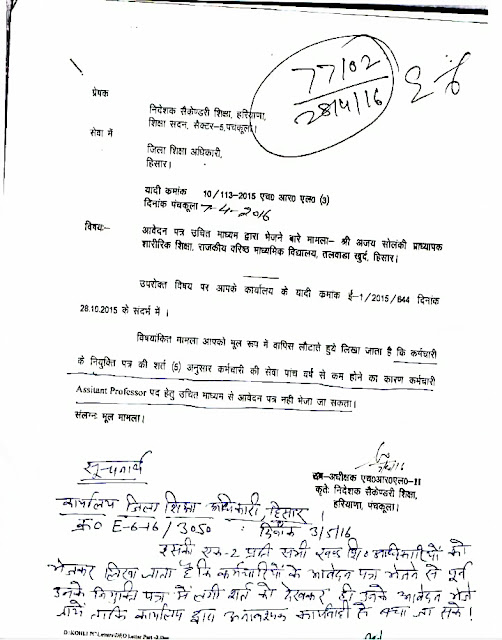 7702
28/4/16
प्रेषक
निदेशक सैकेण्डरी शिक्षा, हरियाणा,
शिक्षा सदन, सैक्टर-5, पंचकूला।
सेवा में
जिला शिक्षा अधिकारी,
हिसार।
यादी कमांक 10/113-2015 एच0 आर0 एल0 (3)
दिनांक पंचकूला 7-4-2016
विषयः- आवेदन पत्र उचित माध्यम द्वारा भेजने बारे मामला- श्री अजय सोलंकी प्राध्यापक
शारीरिक शिक्षा, राजकीय वरिष्ठ माध्यमिक विद्यालय, तलवाडा खुर्द, हिसार।
उपरोक्त विषय पर आपके कार्यालय के यादी कमाक ई-1/2015/644 दिनाक
28.10.2015 के संदर्भ में।
विषयांकित मामला आपको मूल रूप में वापिस लौटाते हुये लिखा जाता है कि कर्मचारी
के नियुक्ति पत्र की शर्त (5) अनुसार कर्मचारी की सेवा पांच वर्ष से कम होने का कारण कर्मचारी
Assitant Professor पद हेतु उचित माध्यम से आवेदन पत्र नही भेजा जा सकता।
संलग्नः मूल मामला।
अधीक्षक एच0आर0एल0-II
कृतेः निदेशक सैकेण्डरी शिक्षा,
हरियाणा, पंचकूला।
सूचनार्थ
कार्यालय जिला शिक्षा अधिकारी, हिसार
क्र0 E-6-16/3050 दिनांक 3/5/16
इसकी एक-2 प्रति सभी खण्ड शि0 अधिकारियों को
भेजकर लिखा जाता है कि कर्मचारियों के आवेदन पत्र भेजने से पूर्व
उनके नियुक्ति पत्र में लगी शर्त को देखकर ही उनके आवेदन भेजे
जायें ताकि कार्यालय द्वारा अनावश्यक कार्यवाही से बचा जा सके!